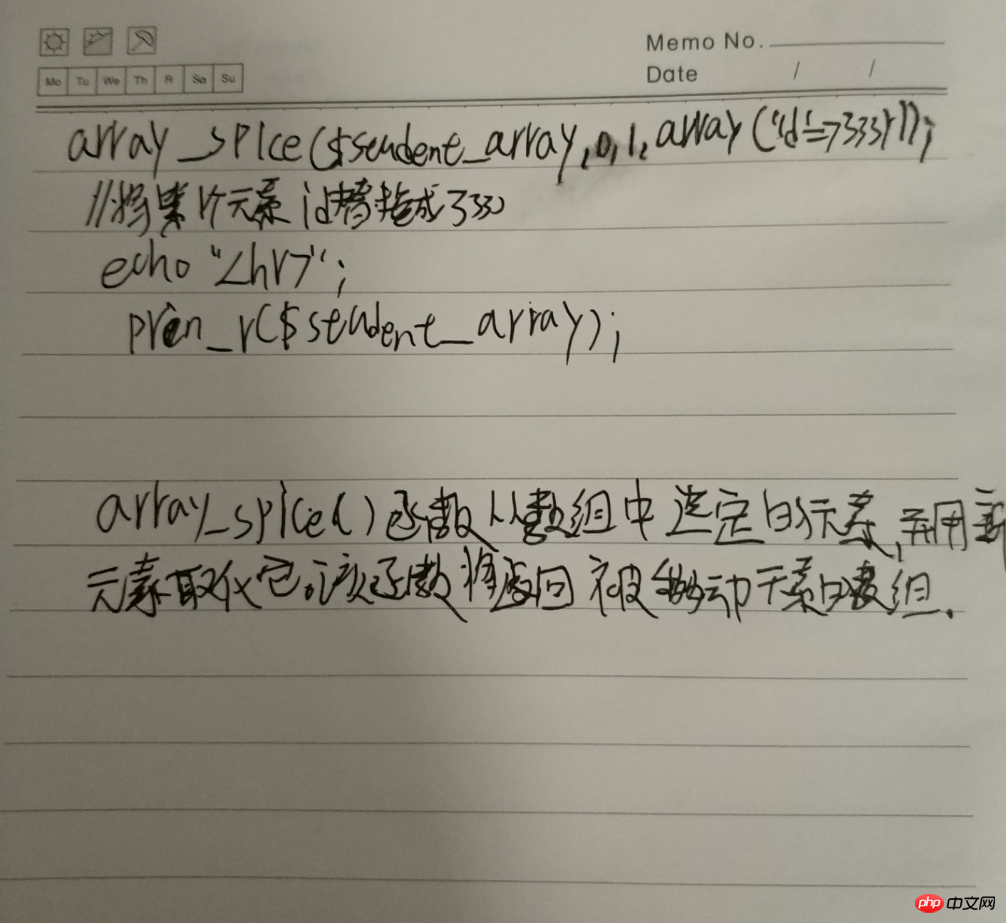 Memo No.
Date / /
Mo Tu We Th Fr Sa Su
array_splce($student_array,0,1,array("id"=>333));
//将第1个元素id替换成333
echo "<hr>";
prin_r($student_array);
array_splce()函数从数组中选定的元素,并用新
元素取代它,该函数将返回被移动元素的数组.
php 中文网